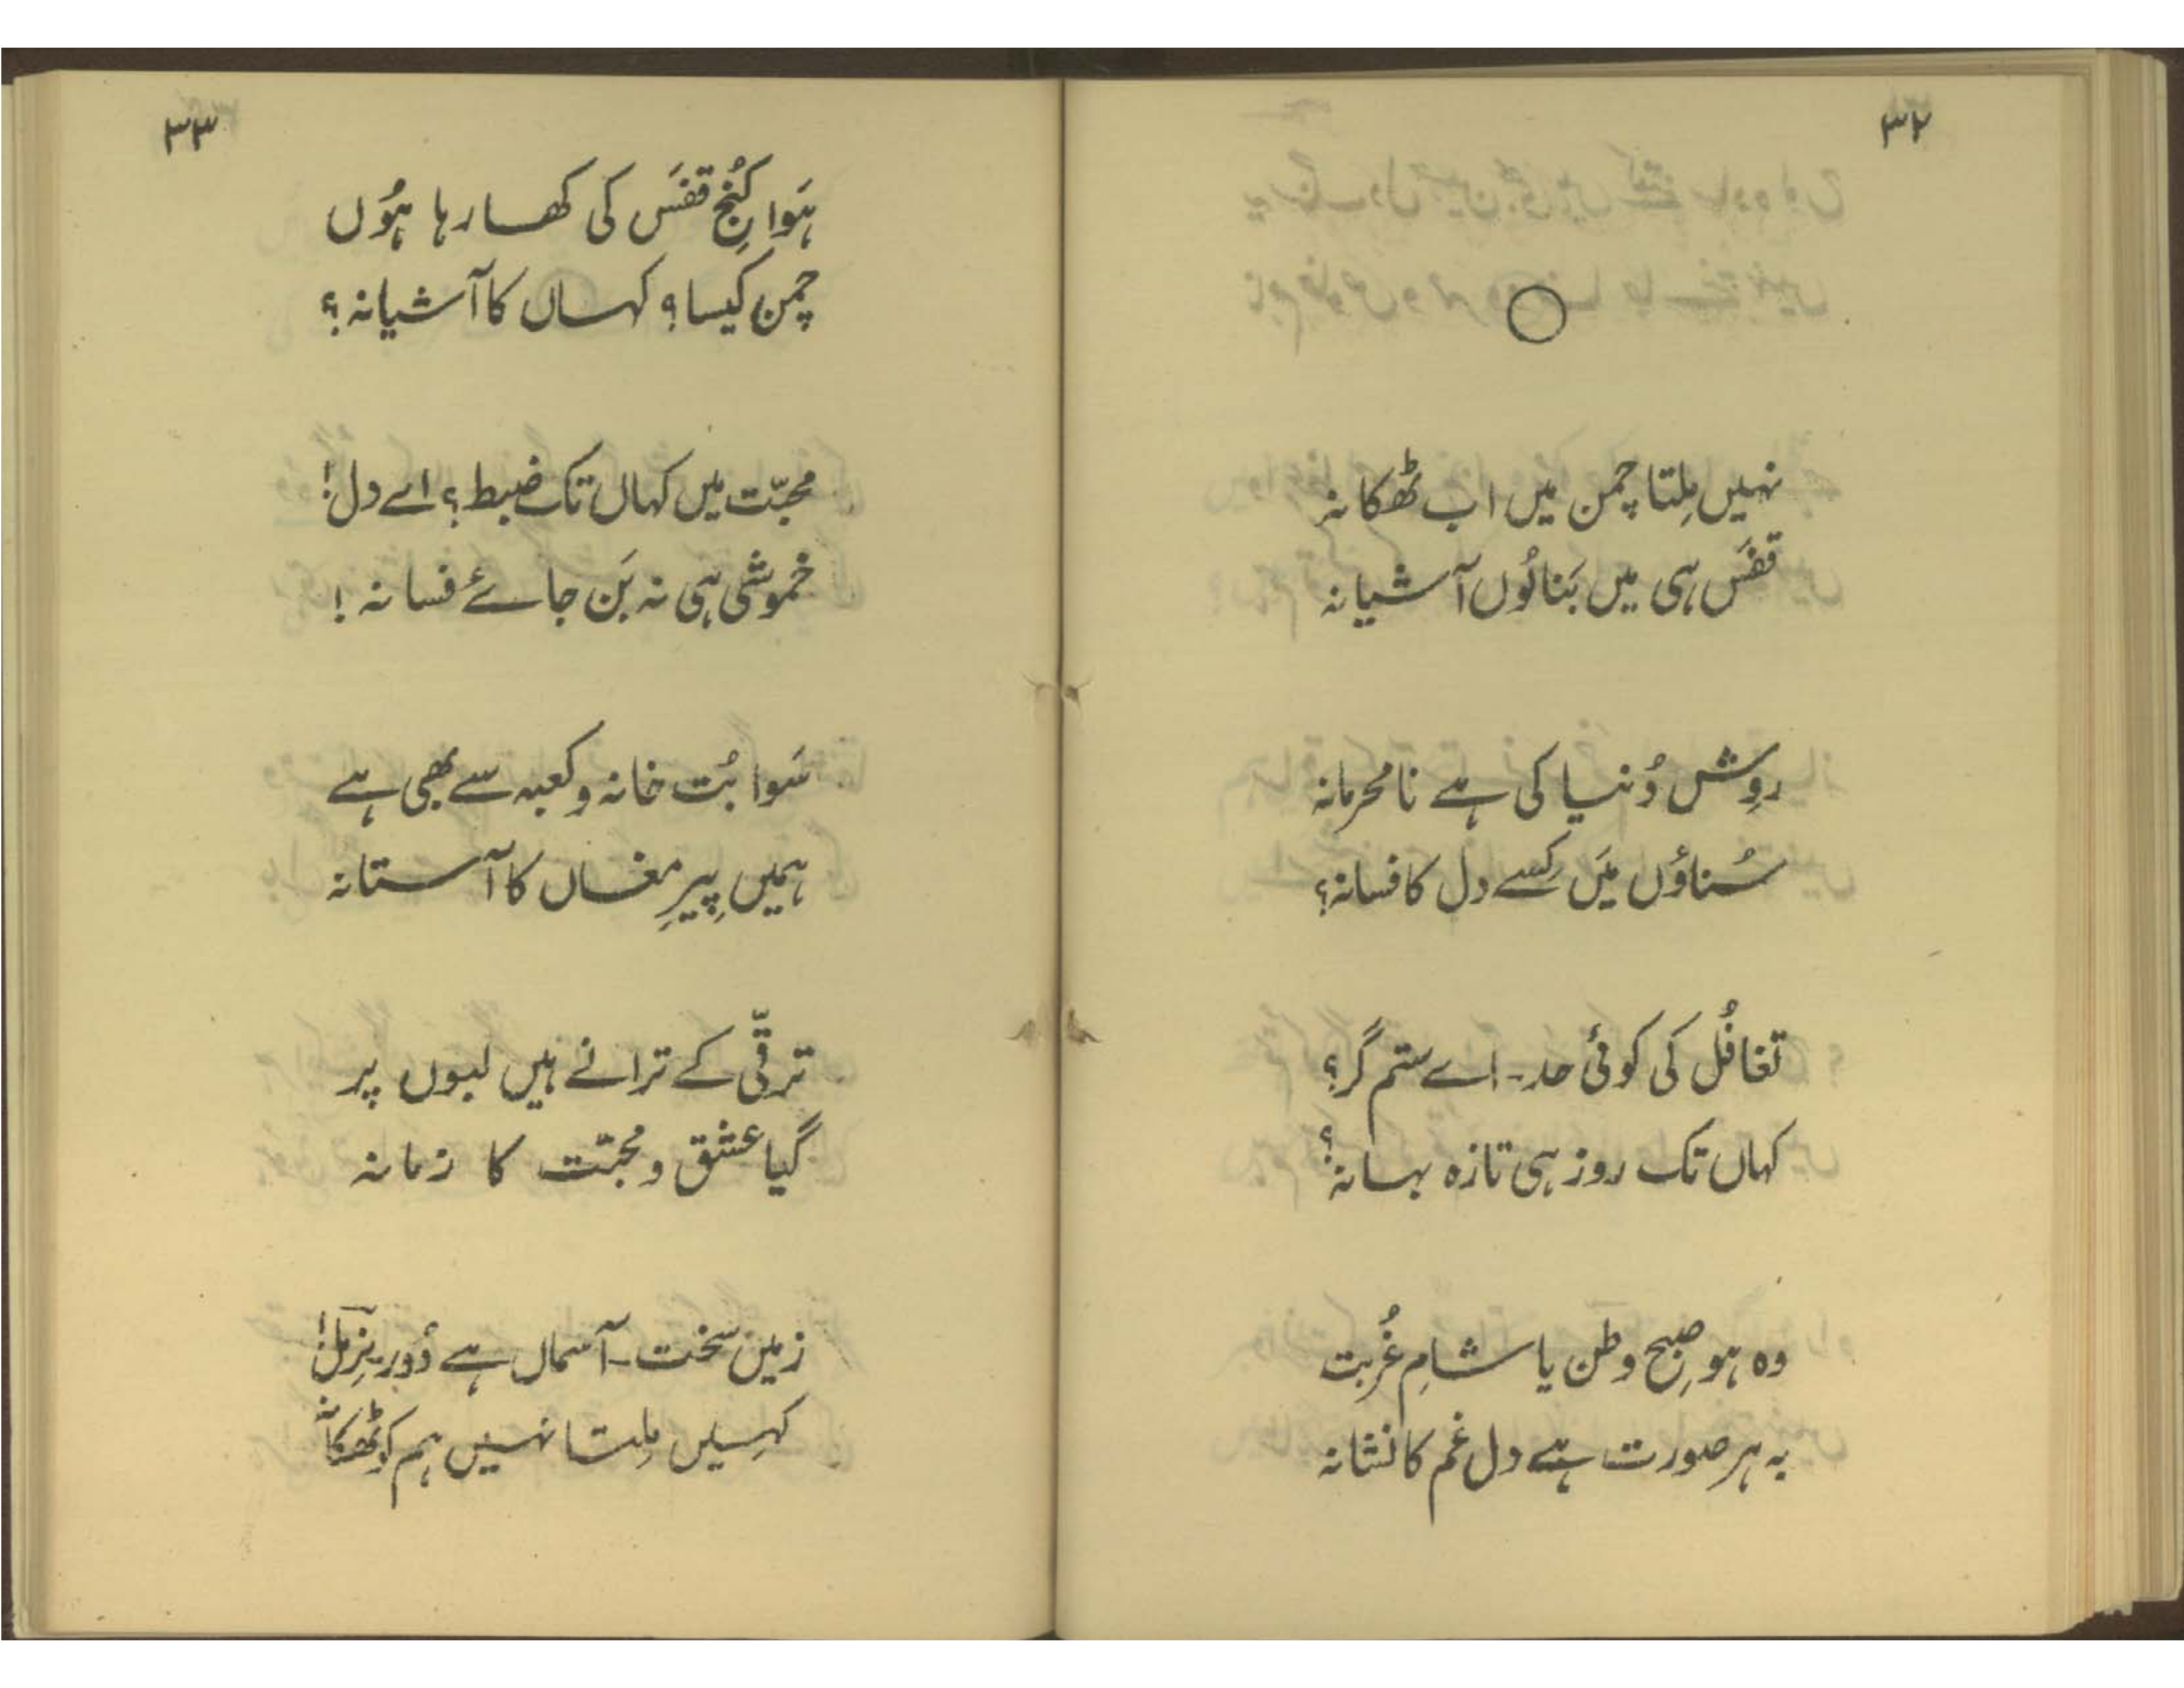 ۳۲
نہیں مِلتا چمن میں اب ٹھکانہ
قفَس ہی میں بَنالُوں آشیانہ
روِش دُنیا کی ہے نامحرمانہ
سُناؤں مَیں کِسے دل کا فسانہ؟
تغافُل کی کوئی حد۔ اے ستم گر؟
کہاں تک روز ہی تازہ بہانہ؟
وہ ہو صبحِ وطن یا شامِ غُربت
بہ ہر صورت ہے دل غم کا نشانہ
۳۳
ہَوا کُنجِ قفَس کی کھا رہا ہُوں
چمن کیسا؟ کہاں کا آشیانہ؟
محبّت میں کہاں تک ضبط؟ اے دل!
خموشی ہی نہ بَن جائے فسانہ!
سَوا بُت خانہ و کعبہ سے بھی ہے
ہمیں پِیرِ مغاں کا آستانہ
ترقّی کے ترانے ہیں لبوں پر
گیا عشق و محبّت کا زمانہ
زمیں سخت۔ آسماں ہے دُور بزمل!
کہیں مِلتا نہیں ہم کو ٹھکانہ